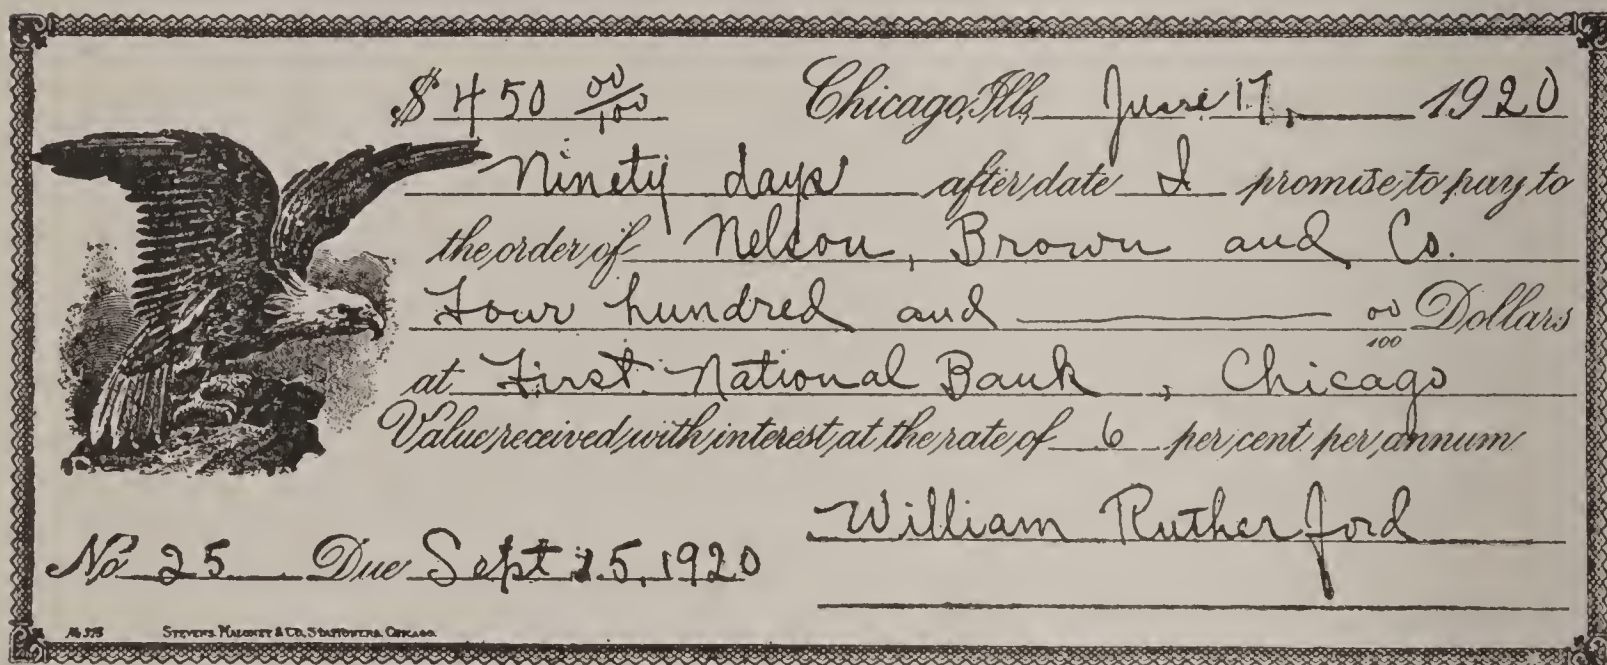 $ 450 00/100 Chicago, Ills. June 17, 1920
Ninety days after date I promise to pay to
the order of Nelson, Brown and Co.
Four hundred and 00/100 Dollars
at First National Bank, Chicago
Value received with interest at the rate of 6 per cent per annum
William Rutherford
No 25 Due Sept 15, 1920
STEVENS, MALONEY & CO, STATIONERS, CHICAGO.